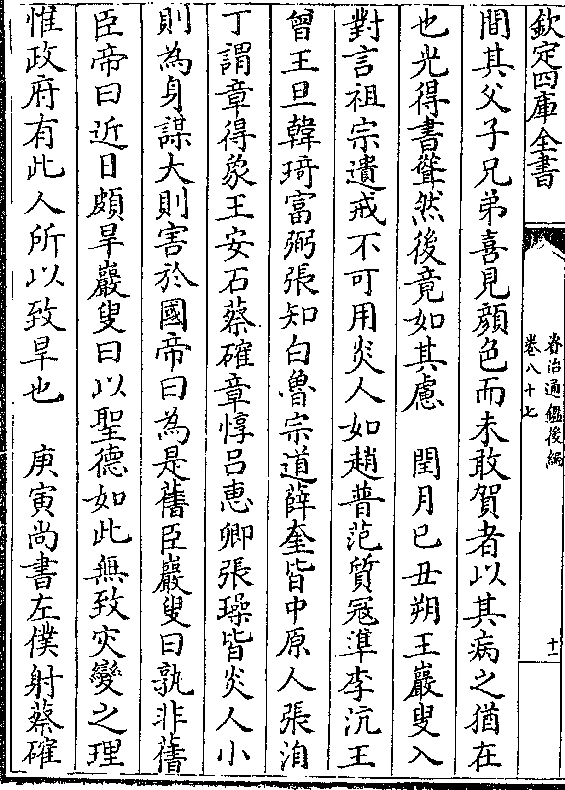 欽定四庫全書
資治通鑑後編
卷八十七
十一
間其父子兄弟喜見顔色而未敢賀者以其病之猶在
也光得書聳然後竟如其慮　閏月已丑朔王巖叟入
對言祖宗遺戒不可用炎人如趙普范質冦準李沆王
曾王旦韓琦富弼張知白魯宗道薛奎皆中原人張洎
丁謂章得象王安石蔡確章惇吕惠卿張璪皆炎人小
則為身謀大則害於國帝曰為是舊臣巖叟曰孰非舊
臣帝曰近日頗旱巖叟曰以聖德如此無致灾變之理
惟政府有此人所以致旱也　庚寅尚書左僕射蔡確